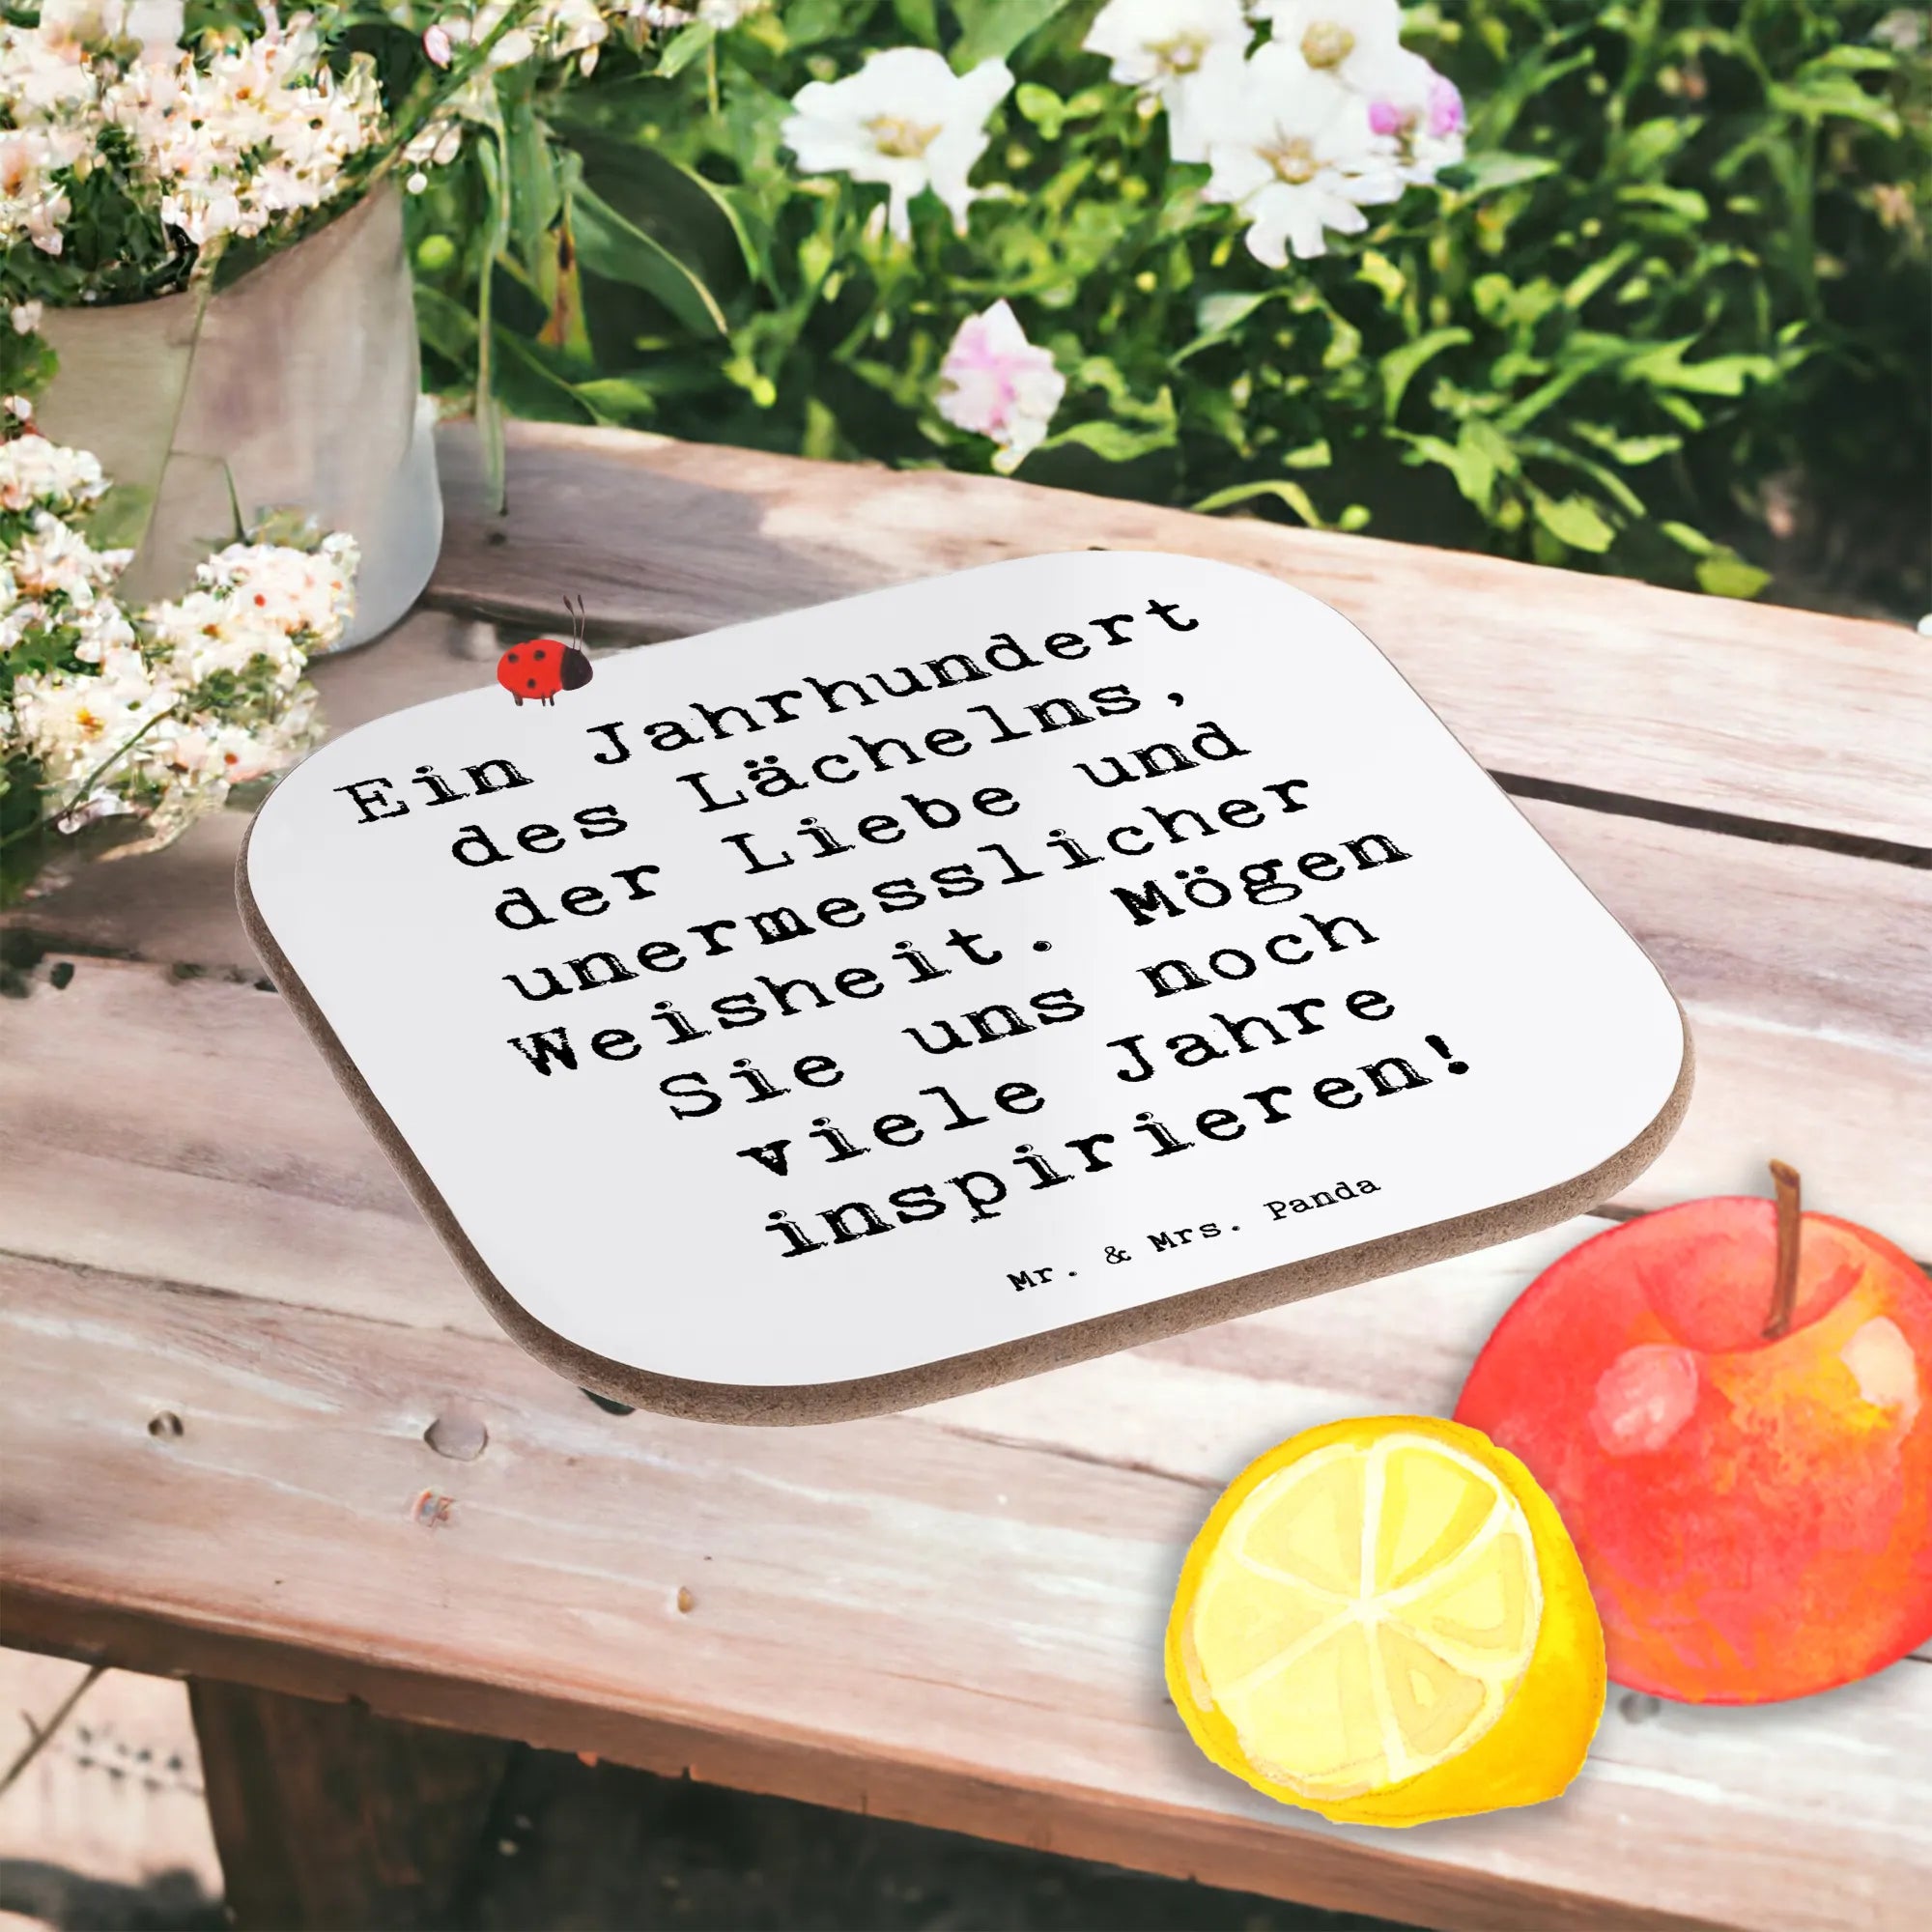 Ein Jahrhundert
des Lächelns,
der Liebe und
unermesslicher
Weisheit. Mögen
Sie uns noch
viele Jahre
inspirieren!
Mr. & Mrs. Panda